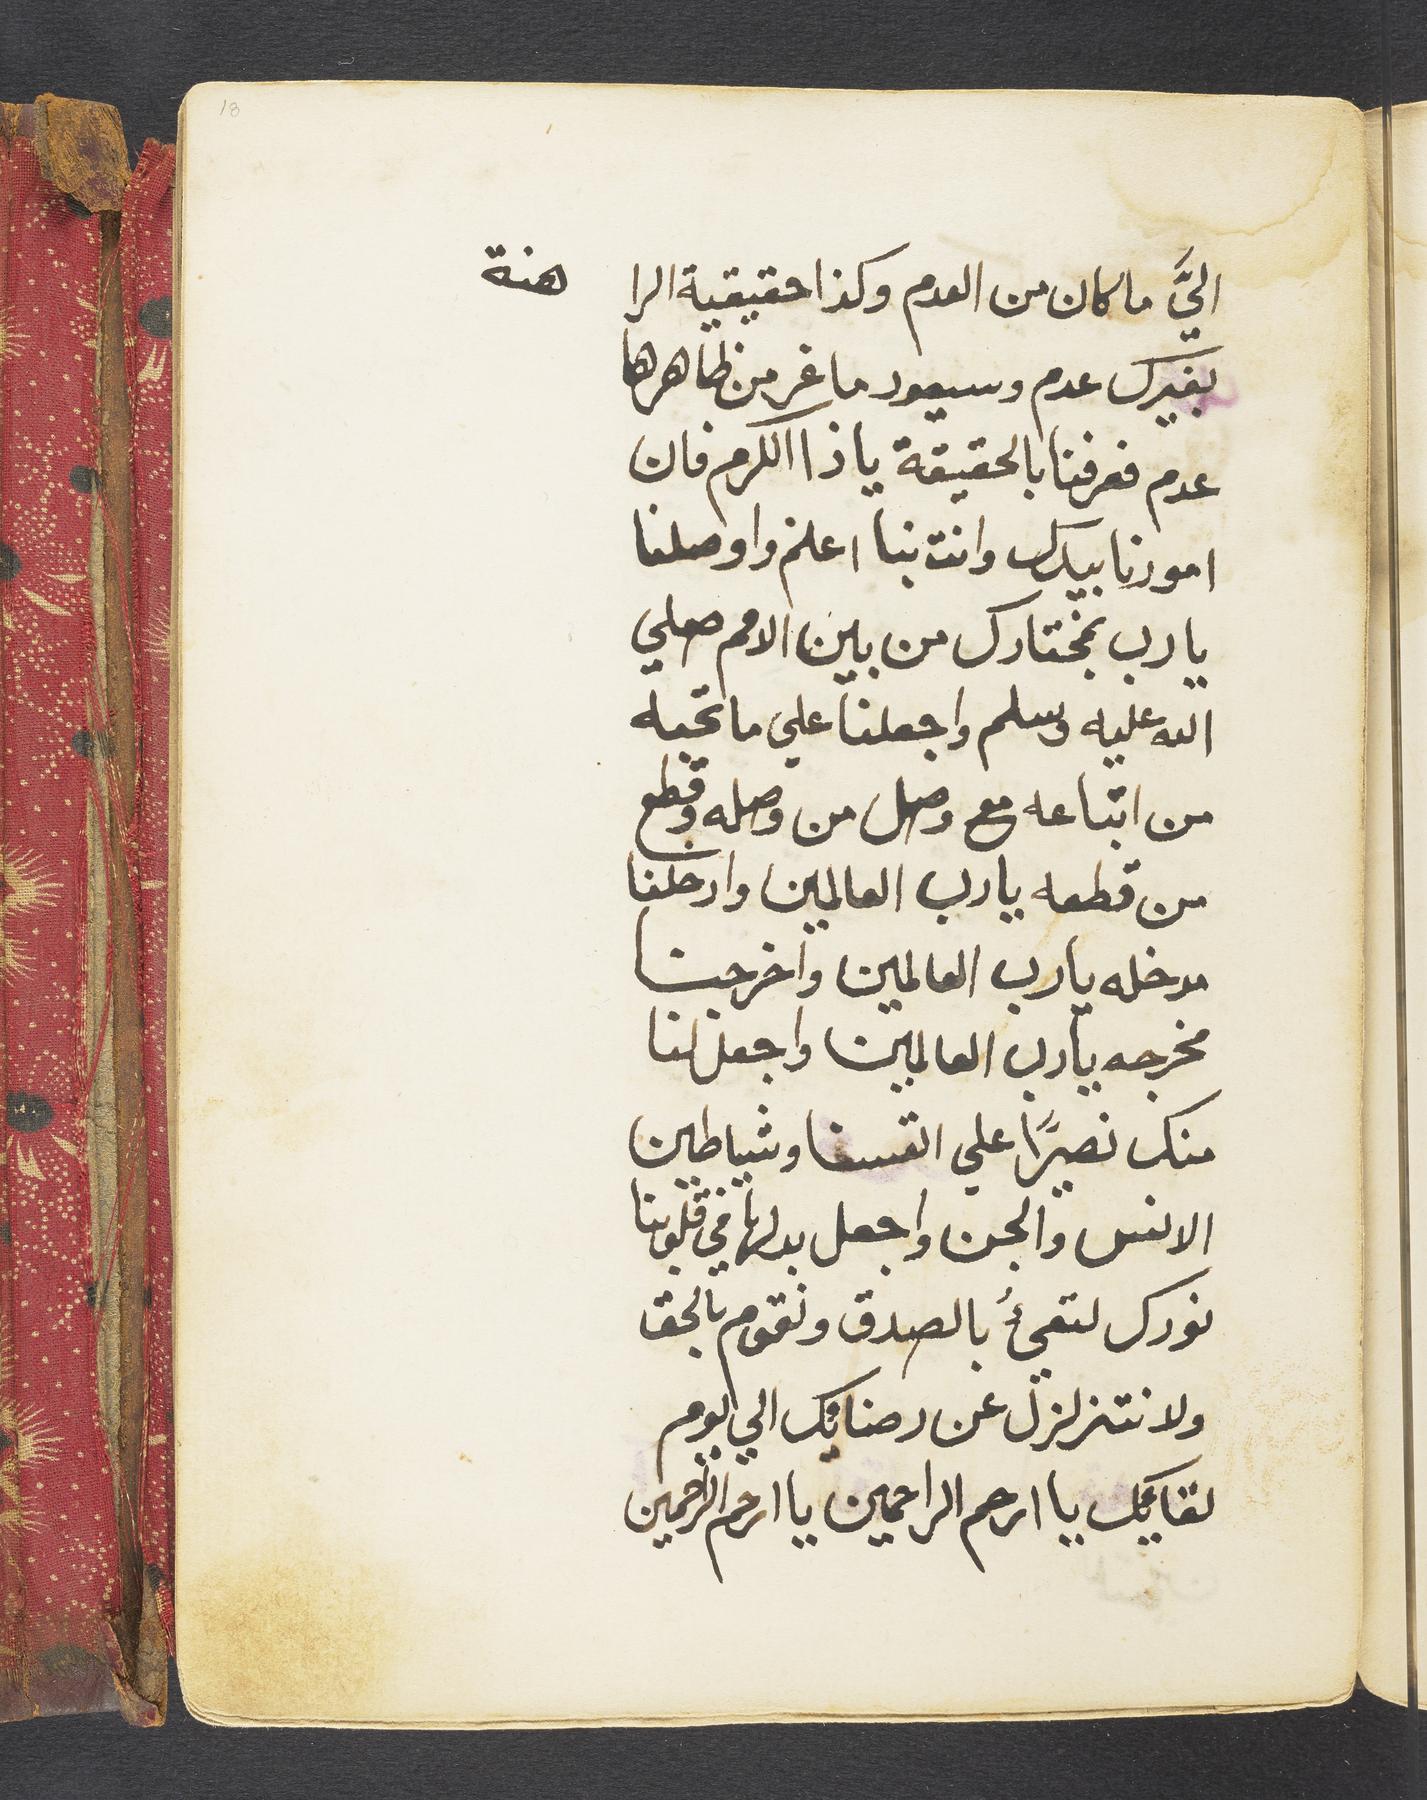 18
اليَّ ما كان من العدم وكذا حقيقية الرا هنة
بغيرك عدم وسيعود ما غر من ظاهرها
عدم فعرفنا بالحقيقة يا ذا الكرم فان
امورنا بيدك وانت بنا اعلم واوصلنا
يا رب بمختارك من بين الامم صلي
الله عليه وسلم واجعلنا علي ما تحبه
من اتباعه مع وصل من وصله وقطع
من قطعه يارب العالمين وادخلنا
مدخله يارب العالمين واخرجنا
مخرجه يارب العالمين واجعل لنا
منك نصيرًا علي انفسنا وشياطين
الانس والجن واجعل بدلها في قلوبنا
نورك لتفيئُ بالصدق ونقوم بالحق
ولا نتزلزل عن رضائك الي يوم
لقائك يا ارحم الراحمين يا ارحم الرحمين